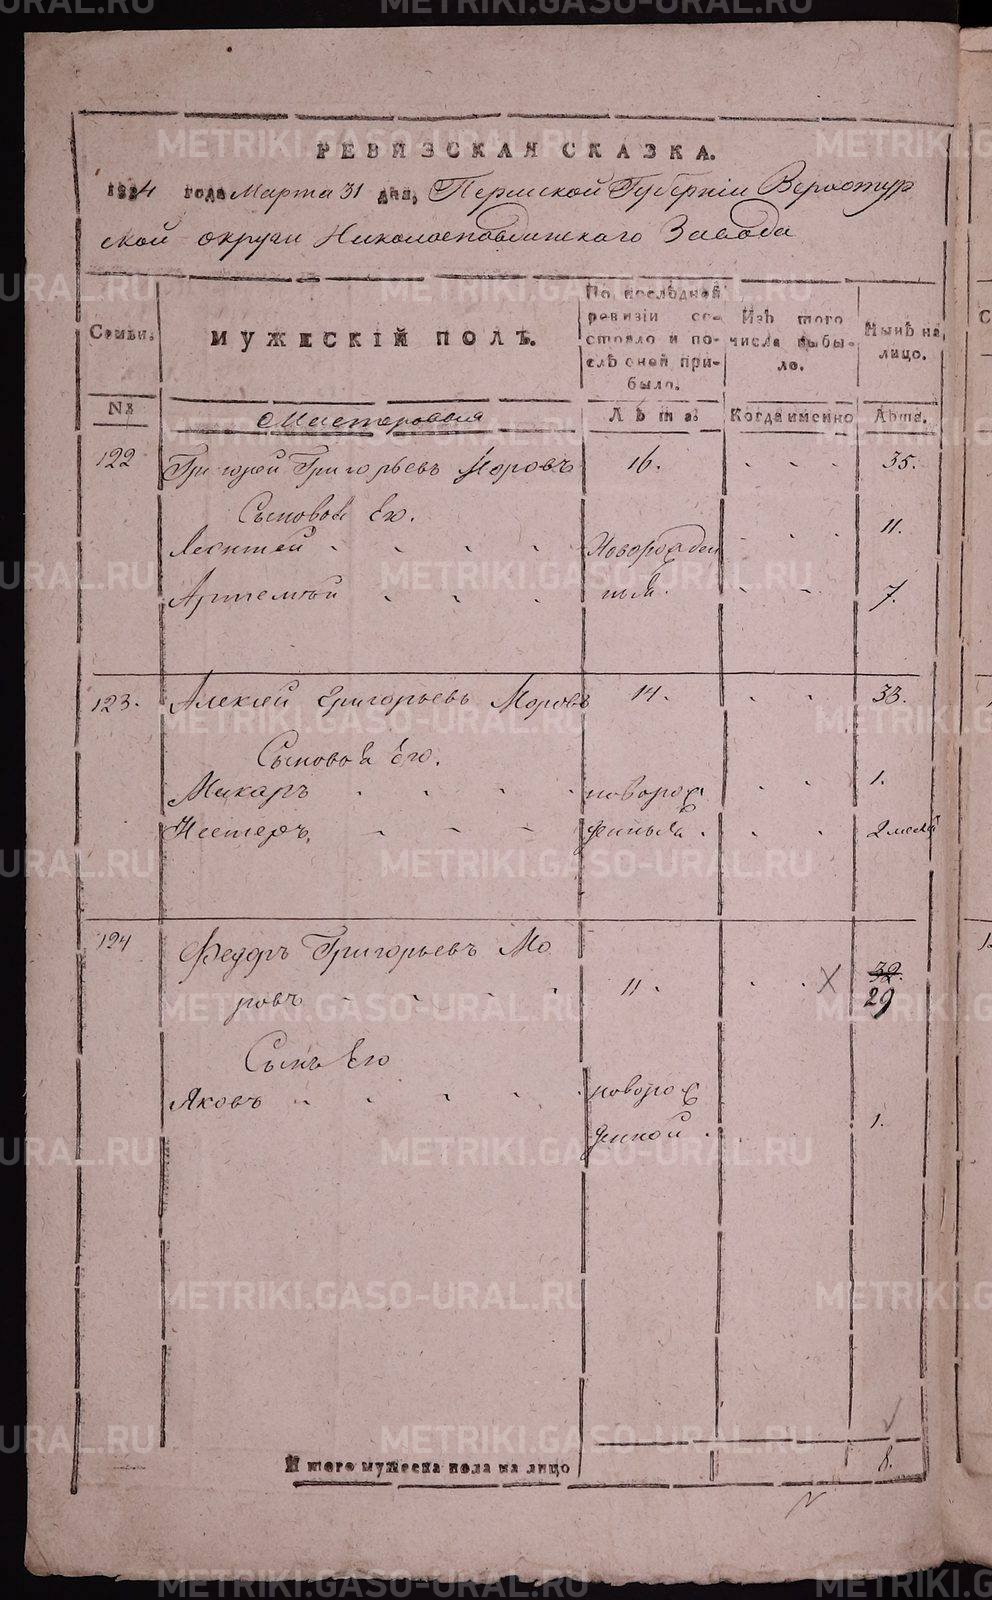 РЕВИЗСКАЯ СКАЗКА.
1834 года Марта 31 дня, Пермской Губернiи Верхотур
ской округи Николаепавдинскаго Завода
Семьи.
МУЖЕСКIЙ ПОЛЪ.
По послѣдней
ревизiи со-
стояло и по-
слѣ оной при-
было.
Изъ того
числа выбы-
ло.
Нынѣ на
лицо.
№
Мастеровыя
Лѣта.
Когда именно
Лѣта.
122 Григорей Григорьевъ Моровъ 16. 35.
Сыновья Его.
Леонтей Новорожден 11.
Артемей ныя. 7.
123. Алексѣй Григорьевъ Моровъ 14. 33.
Сыновья Его.
Макаръ новорож 1.
Нестеръ. денныя. 2 месяц
124 Федоръ Григорьевъ Мо
ровъ 11. 32.
29
Сынъ Его
Яковъ новорож
денной. 1.
И того мужеска пола на лицо 8.
METRIKI.GASO-URAL.RU